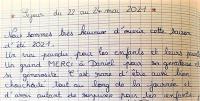 Séjour du 22 au 24 mai 2021
Nous sommes très heureux d'ouvrir cette saison
d'été 2021.
Un vrai paradis pour les enfants et leurs
Un grand MERCI à Daniel pour sa gentillesse
sa générosité. C'est rare d'être aussi bien
chouchouté tout au long de la journée et
d'avoir autant de surprises pour les enfants